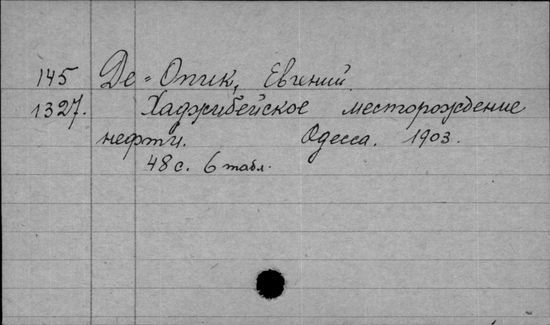 145 Де-Опик, Евгений.
1327. Хаджибейское месторождение
нефти. Одесса. 1903.
48 с. 6 табл.